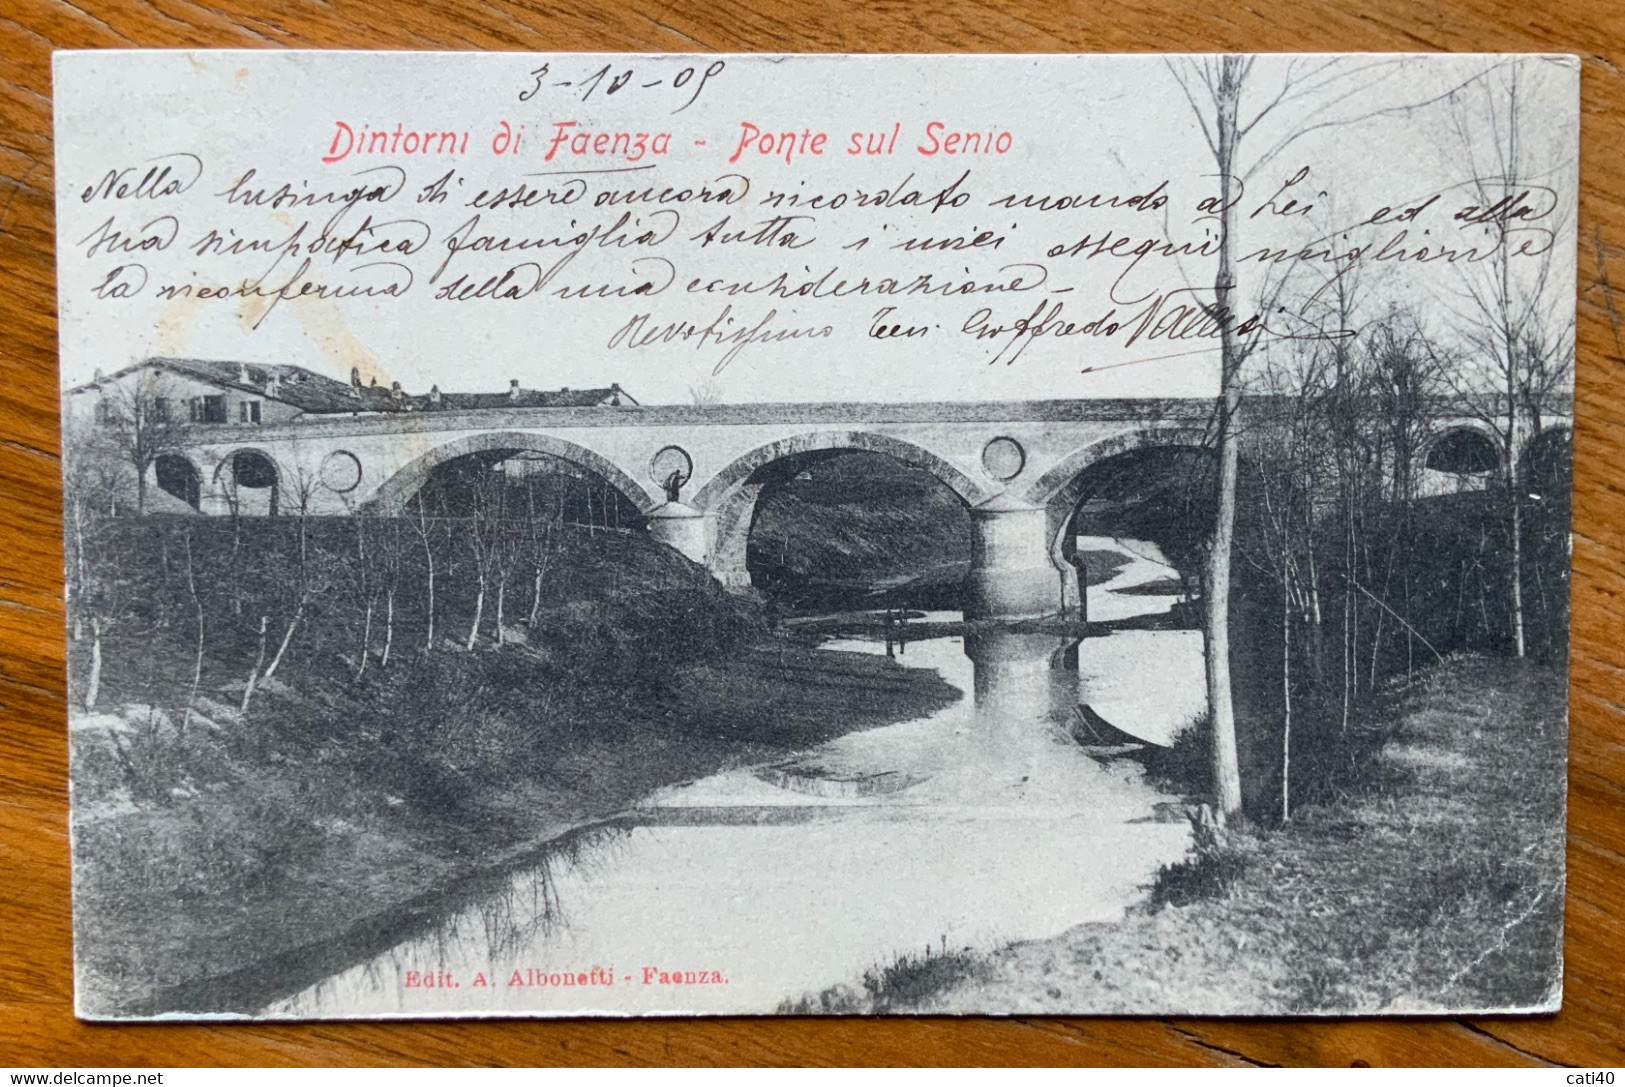 3-10-05
Dintorni di Faenza - Ponte sul Senio
Nella lusinga di essere ancora ricordato mando a Lei ed alla
sua simpatica famiglia tutta i miei ossequi migliori e
la riconferma della mia considerazione -
Devotissimo Ten. Goffredo
Edit. A. Albonetti - Faenza.
cati40